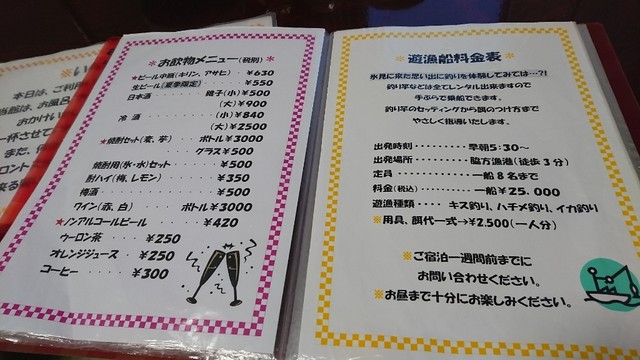 ※い
本日は、ご利用
当館は、お風呂
おかけい
一杯させて
また、
ロント
来る
★お飲物メニュー(税別)★
★ビール中瓶(キリン、アサヒ)・¥630
生ビール(夏季限定)・・・・¥550
日本酒・・・・・銚子(小)¥500
(大)¥900
冷酒・・・・・・(小)¥840
(大)¥2500
★焼酎セット(麦、芋) ボトル¥3000
グラス¥500
焼酎用(氷・水)セット・・¥500
酎ハイ(梅、レモン)・・・¥350
梅酒・・・・・・・・・・¥500
ワイン(赤、白) ボトル¥3000
★ノンアルコールビール・・・¥420
ウーロン茶・・・¥250
オレンジジュース・¥250
コーヒー・・・・¥300
※遊漁船料金表※
氷見に来た思い出に釣りを体験してみては…?!
釣り竿などは全てレンタル出来ますので
手ぶらで乗船できます。
釣り竿のセッティングから餌のつけ方まで
やさしく指導いたします。
出発時刻・・・・・・・・早朝5:30~
出発場所・・・・・・・脇方漁港(徒歩3分)
定員・・・・・・・・・一船8名まで
料金(税込)・・・・・・・一船¥25.000
遊漁種類・・・・キス釣り、ハチメ釣り、イカ釣り
※用具、餌代一式→¥2.500(一人分)
※ご宿泊一週間前までに
お問い合わせください。
※お昼まで十分にお楽しみください。